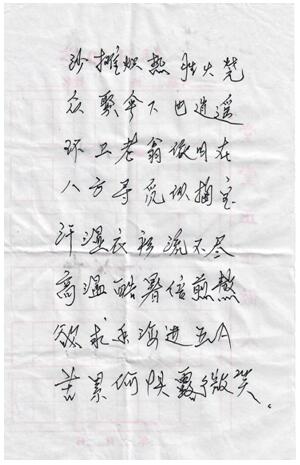 沙滩炽热胜火凳
众聚伞下也逍遥
环卫老翁依旧在
八方寻觅似掏宝
汗湿衣衫流不尽
高温酷暑倍煎熬
欲求乐海进五A
苦累何惧露微笑。